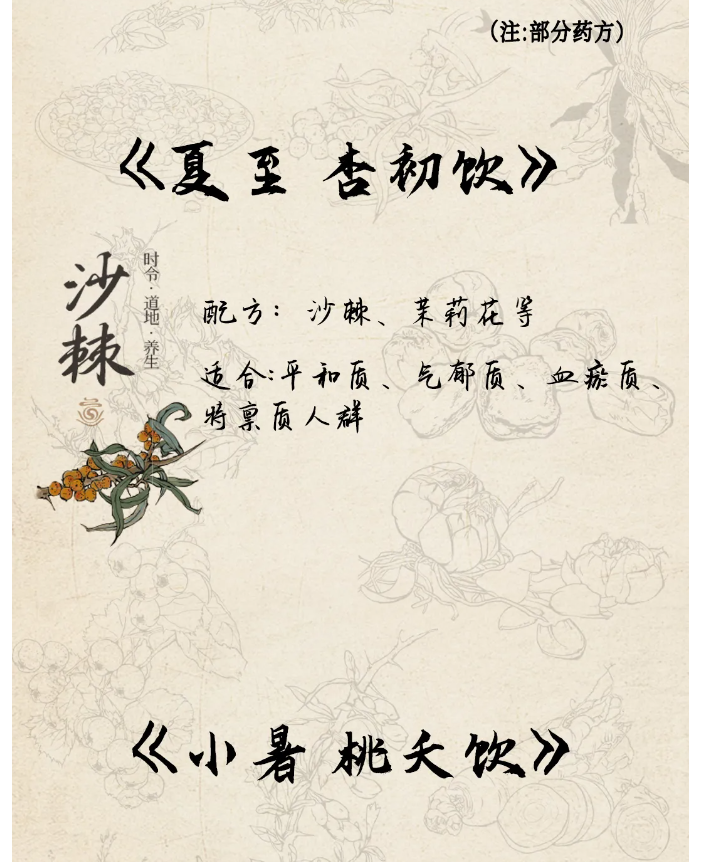 （注:部分药方）
《夏至 杏初饮》
沙棘
时令·道地·养生
配方：沙棘、茉莉花等
适合:平和质、气郁质、血瘀质、
特禀质人群
《小暑 桃夭饮》